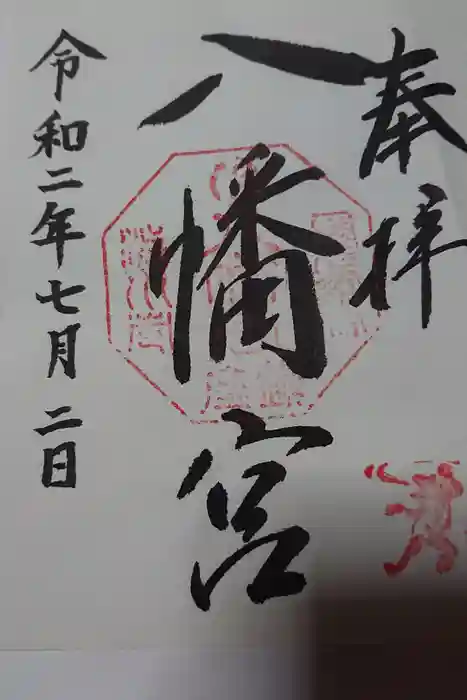 奉拝
八幡宮
令和二年七月二日